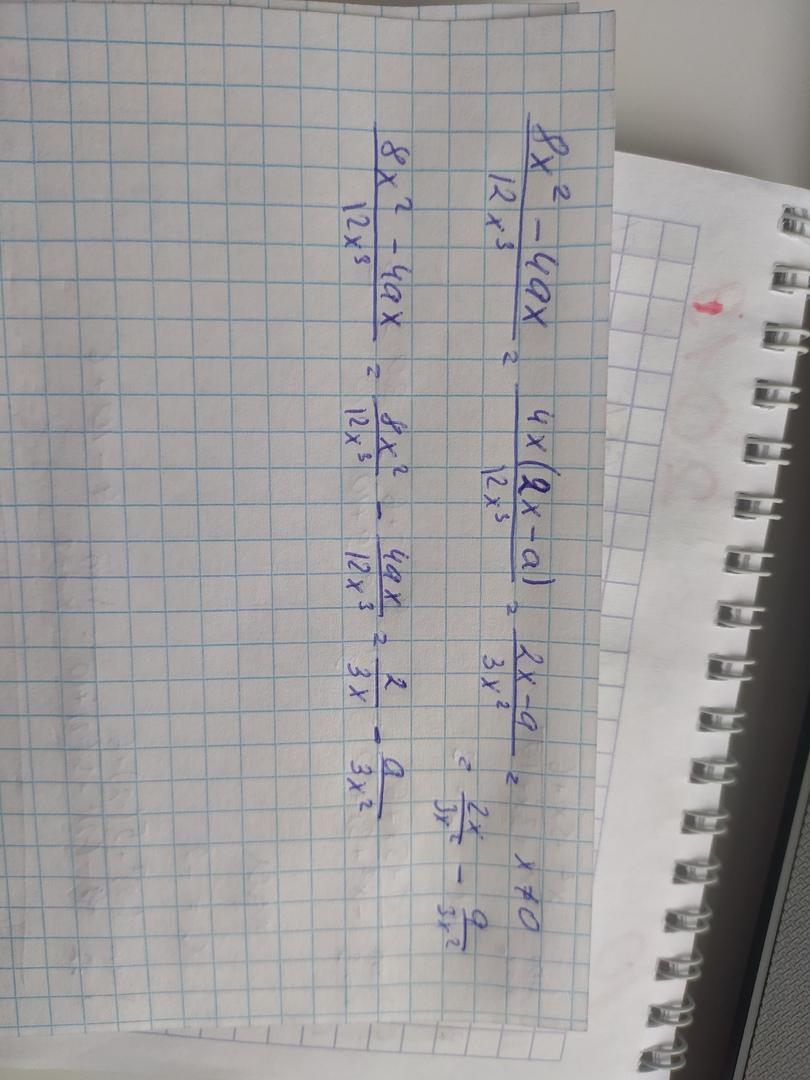 (8x² - 4ax)/(12x³) = (4x(2x - a))/(12x³) = (2x - a)/(3x²) = x ≠ 0
= 2x/(3x²) - a/(3x²)
(8x² - 4ax)/(12x³) = 8x²/(12x³) - 4ax/(12x³) = 2/(3x) - a/(3x²)